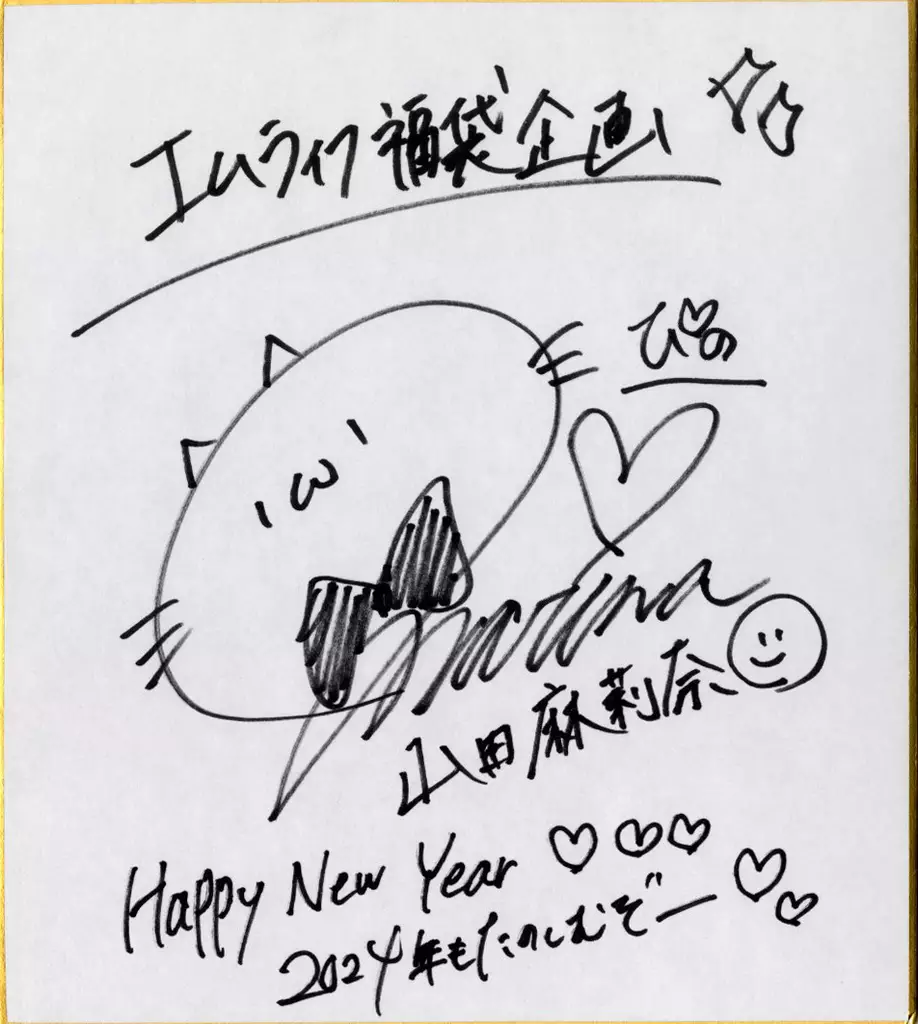 エムライフ福袋企画
ぴの
'ω'
Marina
山田麻莉奈
Happy New Year ♡♡♡
2024年もたのしむぞー♡♡